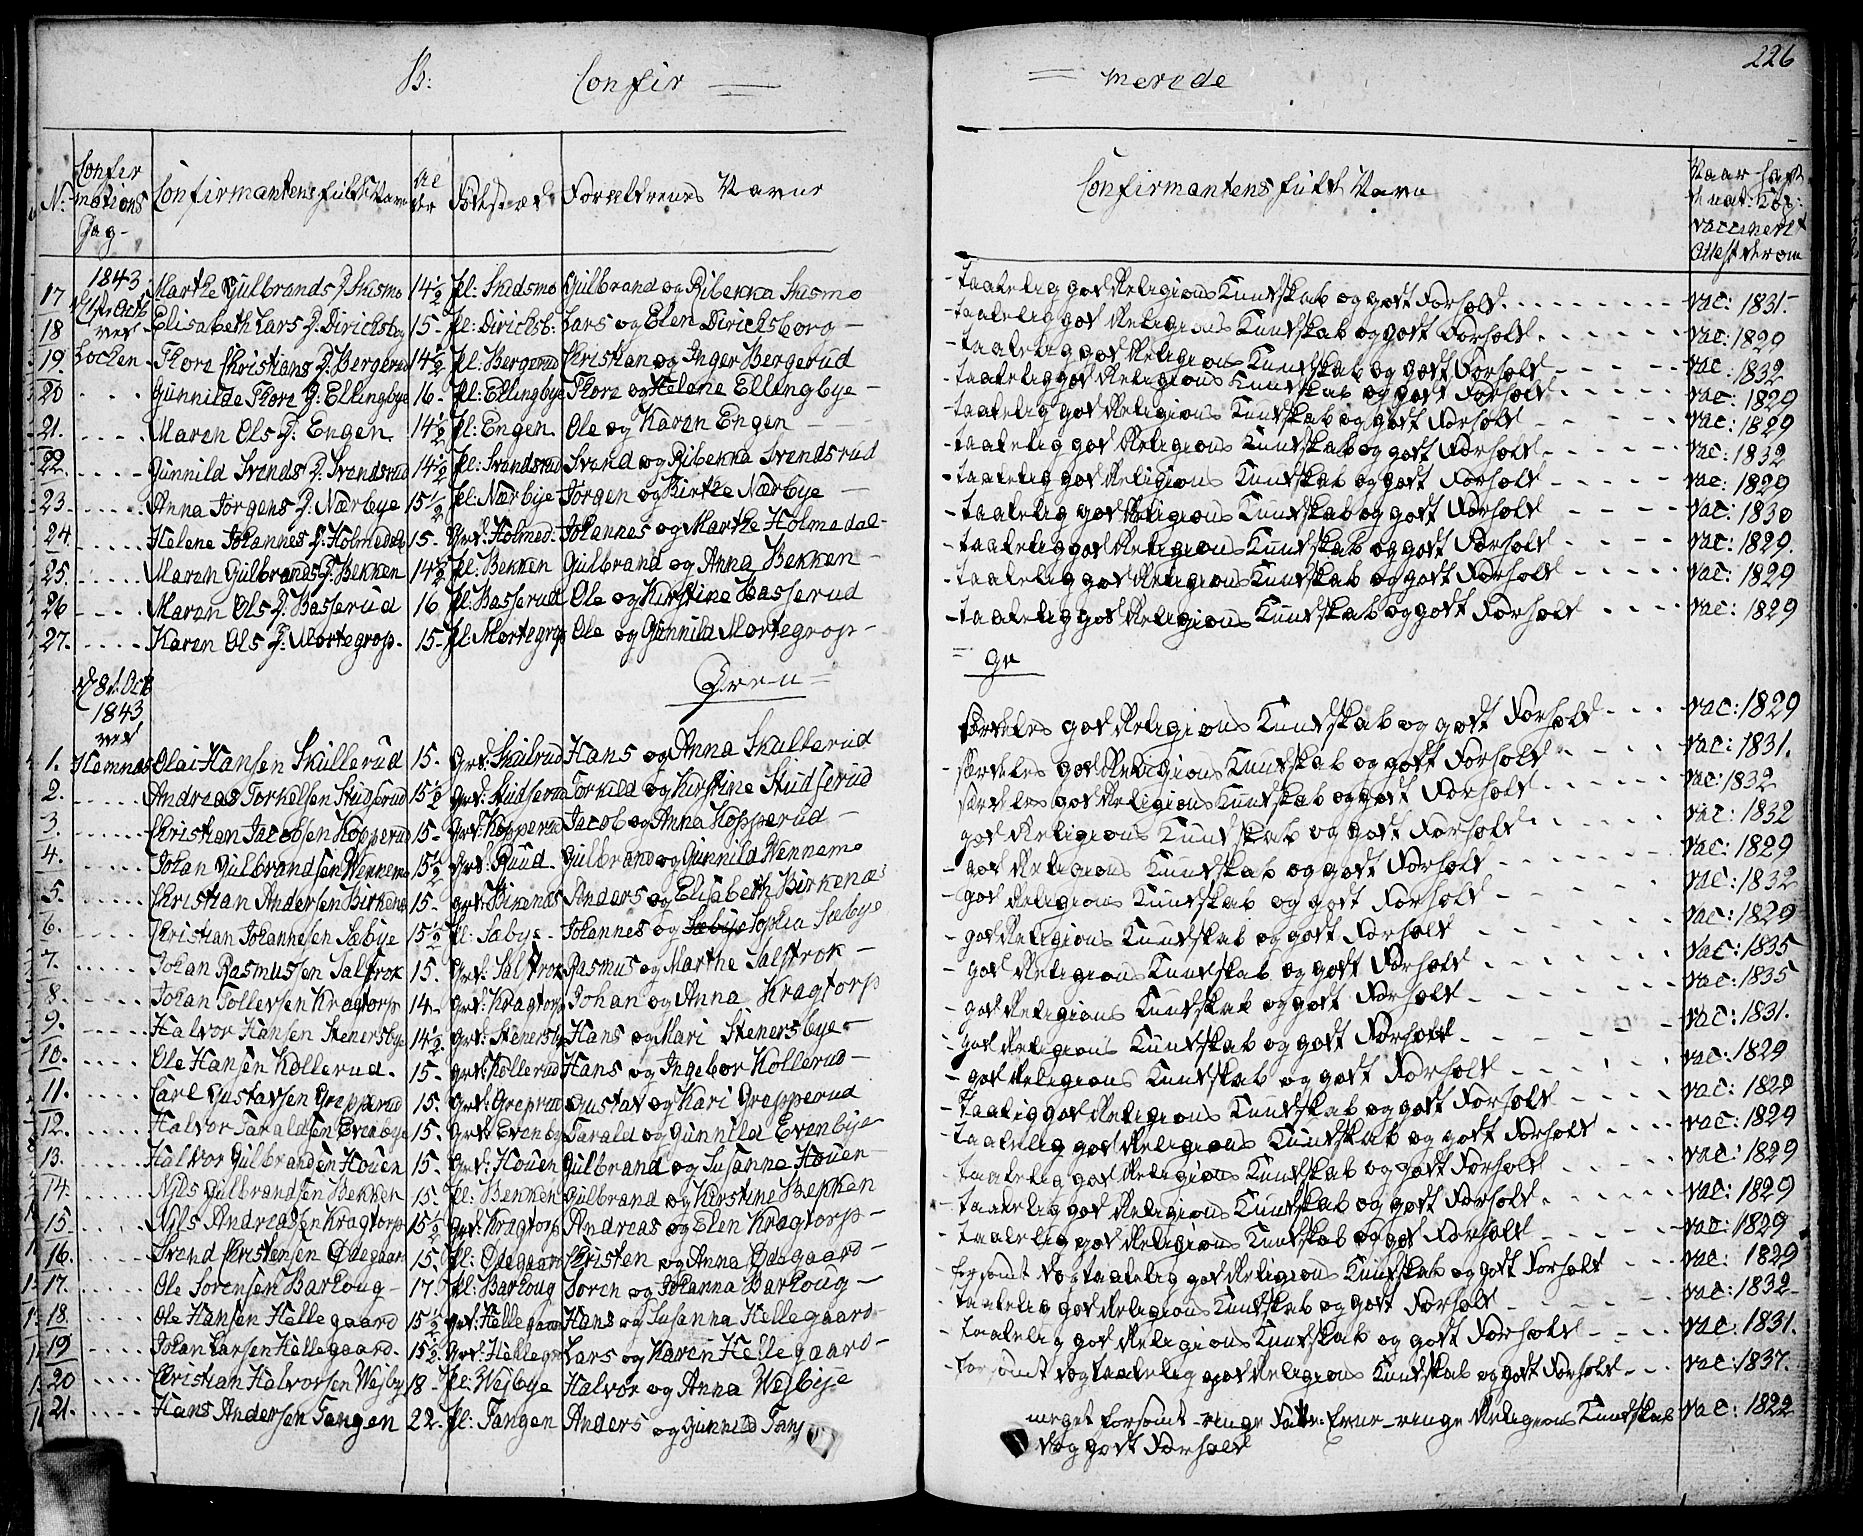 226
B: Confir
merede
N: Confirmations Dag- Confirmantens fulde Navn Alder Fødested Forældrenes Navne Confirmantens fulde Navn Naar hafte Vaccineret Attest derom
17 1843 Marthe Gulbrands D. Skismo 14½ pl: Skidsmo Gulbrand og Ribekka Skismo - taalelig god Religions Kundskab og godt Forhold vac: 1831-
18 ved Elisabeth Lars D. Diricksbog 15- pl: Diricksb: Lars og Elen Diricksborg - taalelig god Religions Kundskab og godt Forhold vac: 1829
19. Lochen - Thore Christians D. Bergerud 14½ pl: Bergerud Christian og Inger Bergerud - taalelig god Religions Kundskab og godt Forhold vac: 1832
20 Gunnilde Thore D: Ellingbye 16- pl: Ellingbye Thore og Helene Ellingbye - taalelig god Religions Kundskab og godt Forhold vac: 1829
21. Maren Ols D. Engen 14½ pl: Engen. Ole og Karen Engen - taalelig god Religions Kundskab og godt Forhold vac: 1829
22. Gunnild Svends D. Svendsrud 14½ pl: Svendsrud Svend og Ribekka Svendsrud - taalelig god Religions Kundskab og godt Forhold vac: 1832
23 Anna Jørgens D. Nærbye 15½ pl: Nærbye Jørgen og Birthe Nærbye - taalelig god Religions Kundskab og godt Forhold vac: 1829
24 Helene Johannes D. Holmedal 15- Grd: Holmed. Johannes og Marthe Holmedal - taalelig god Religions Kundskab og godt Forhold vac: 1830
25. Maren Gulbrands D. Bekken 14½ pl: Bekken Gulbrand og Anna Bekken - taalelig god Religions Kundskab og godt Forhold vac: 1829.
26 Maren Ols D. Basserud 16 pl: Basserud Ole og Kirstine Basserud - taalelig god Religions Kundskab og godt Forhold vac: 1829
27. Karen Ols D: Mortegrop. 15- pl: Mortegrop Ole og Gunnild Mortegrop - taalelig god Religions Kundskab og godt Forhold vac: 1829
d 8d Octb 1843 ved Dren = ge
1. Hemnæs Olai Hansen Skullerud 15. Grd: Skulrud Hans og Anna Skullerud særdeles god Religions Kundskab og godt Forhold vac: 1829
2. Andreas Torkelsen Studserud 15½ Grd: Studserud Torkild og Kirstine Studserud - særdeles god Religions Kundskab og godt Forhold vac: 1831.
3. Christian Jacobsen Kopperud 15- Grd: Kopperud Jacob og Anna Kopperud - særdeles god Religions Kundskab og godt Forhold vac: 1832
4. Johan Gulbrandsen Wennemo 15½ Grd: Ruud. Gulbrand og Gunnild Wennemo god Religions Kundskab og godt Forhold vac: 1832
5. Christian Andersen Birkenæs 15- grd: Birkenæs Anders og Elisabeth Birkenæs - god Religions Kundskab og godt Forhold vac: 1829
6. Christian Johannesen Sæbye 15½ pl: Sæbye - Johannes og Sæbye Sophia Sæbye - god Religions Kundskab og godt Forhold vac: 1832
7. Johan Rasmussen Salstrok 15. Grd: Salstrok Rasmus og Marthe Salstrok - god Religions Kundskab og godt Forhold vac: 1829
8. Johan Tollevsen Kragtorp 14- Grd: Kragtorp Johan og Anna Kragtorp - god Religions Kundskab og godt Forhold vac: 1835
9. Halvor Hansen Stenersbye 14½ Grd: Stenersby Hans og Mari Stenersbye - god Religions Kundskab og godt Forhold vac: 1835
10. Ole Hansen Kollerud. 15- Grd: Kollerud Hans og Ingebor Kollerud - god Religions Kundskab og godt Forhold vac: 1831.
11. Carl Gustavsen Grepperud 15. Grd: Greprud Gustav og Kari Grepperud - god Religions Kundskab og godt Forhold vac: 1829
12. Halvor Taraldsen Evenbye 15. Grd: Evenby Tarald og Gunnild Evenbye - taalig god Religions Kundskab og godt Forhold vac: 1829
13. Halvor Gulbrandsen Houen 15. Grd: Houen Gulbrand og Susanna Houen - taalelig god Religions Kundskab og godt Forhold vac: 1829
14. Nils Gulbrandsen Bekken 15. pl: Bekken Gulbrand og Kirstine Bekken - taalelig god Religions Kundskab og godt Forhold vac: 1829
15. Nils Andreasen Kragtorp 15½ Grd: Kragtorp Andreas og Elen Kragtorp - taalelig god Religions Kundskab og godt Forhold vac: 1829
16. Svend Christensen Ødegaard 15. pl: Ødegaard Christen og Anna Ødegaard - taalelig god Religions Kundskab og god Forhold vac: 1829
17. Ole Sørensen Barhoug - 17. pl: Barhoug Søren og Johanna Barhoug - forsømt dog taalelig god Religions Kundskab og godt Forhold vac: 1829
18. Ole Hansen Hellegaard 15½ Grd: Hellegaard Hans og Susanna Hellegaard - taalelig god Religions Kundskab og godt Forhold vac: 1832-
19 Johan Larsen Hellegaard. 15½ Grd: Hellegd Lars og Karen Hellegaard - taalelig god Religions Kundskab og godt Forhold vac: 1831.
20 Christian Halvorsen Wejby 18- pl: Wejbye Halvor og Anna Wejbye - forsømt dog taalelig god Religions Kundskab og godt Forhold vac: 1837.
21. Hans Andersen Tangen 22. pl: Tangen Anders og Gunnild Tang meget forsømt - ringe - ringe Religions Kundskab vac: 1822
dog godt Forhold